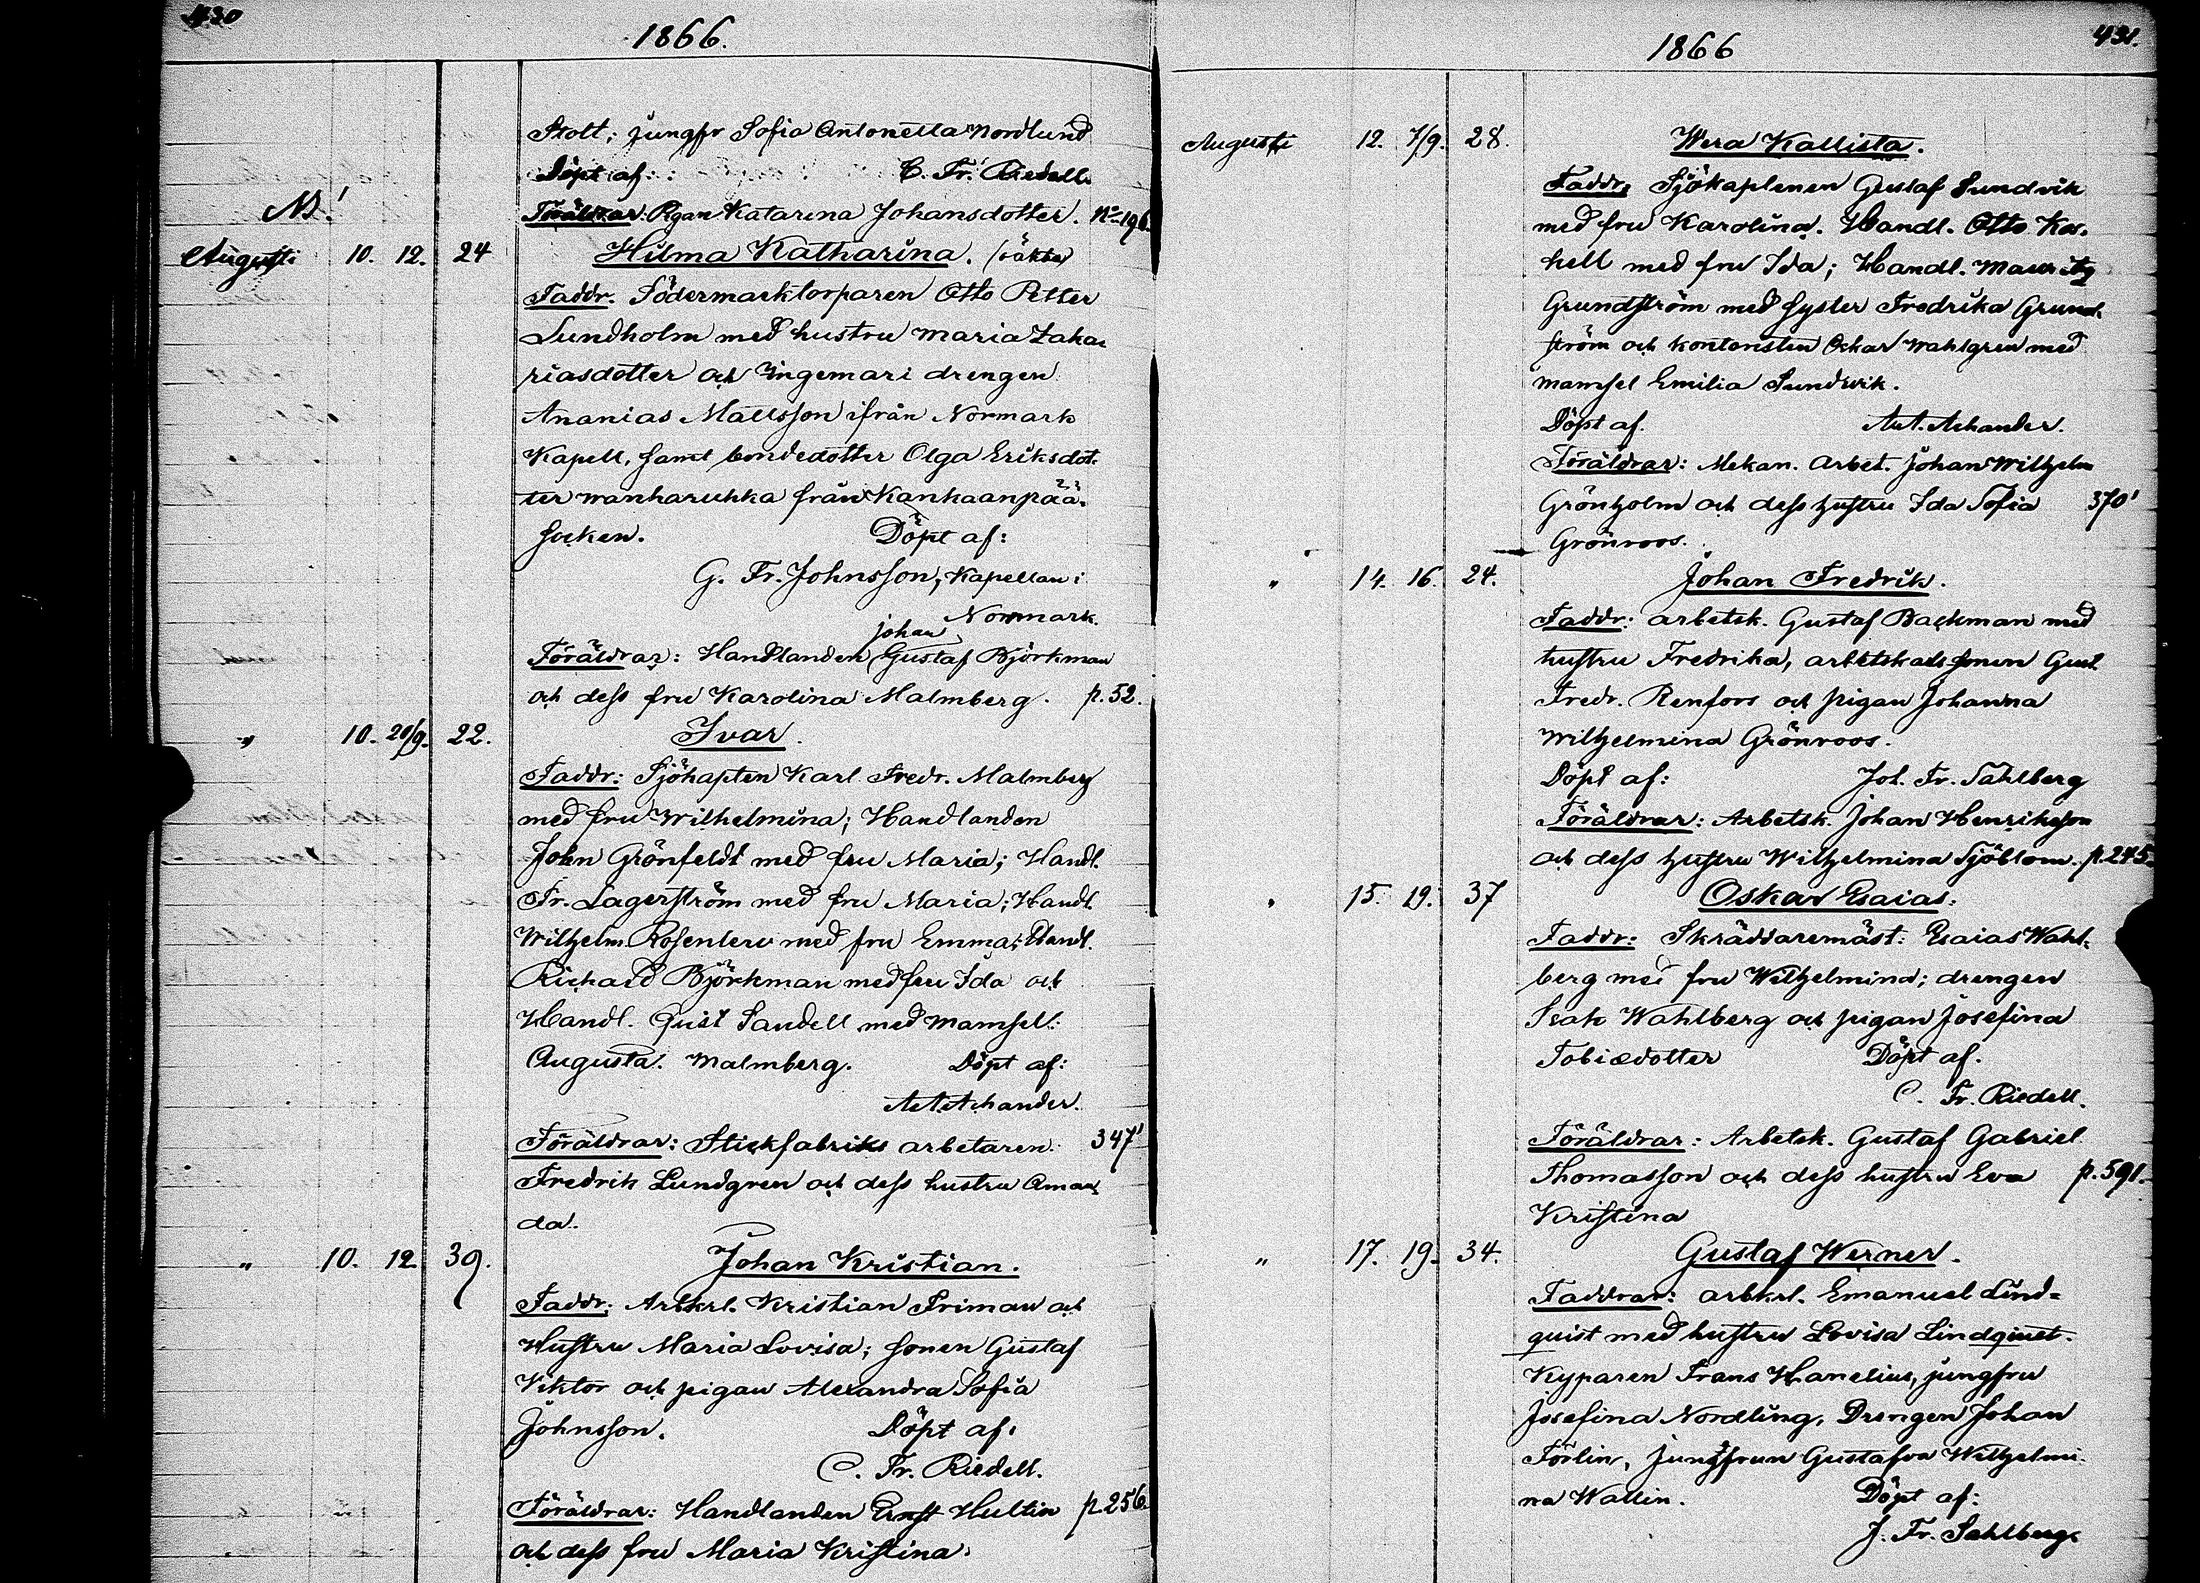 430
1866.
Stolt; jungfr Sofia Antonetta Nordlund
Döpt af: C. Fr. Riedell.
NB!
Föräldrar: Pigan Katarina Johansdotter. No 196.
Augusti 10. 12. 24 Hilma Katharina. (oäkta)
Faddr. Södermarktorparen Otto Petter
Lundholm med hustru Maria Zaka-
riasdotter och Ingemari drengen
Ananias Mattsson ifrån Normark
Kapell, samt bondedotter Olga Eriksdot-
ter wanharuhka från Kankaanpää
socken. Döpt af:
G. Fr. Johnsson, Kapellan i
Normark.
Föräldrar: Handlanden Johan Gustaf Björkman
och dess fru Karolina Malmberg. p. 52.
" 10. 20/9. 22. Ivar.
Faddr: Sjökapten Karl Fredr. Malmberg
med fru Wilhelmina; Handlanden
John Grönfeldt med fru Maria; Handl.
Fr. Lagerström med fru Maria; Handl.
Wilhelm Rosenlew med fru Emma; Handl.
Richard Björkman med fru Ida och
Handl. Gust Sandell med Mamsell:
Augusta Malmberg. Döpt af:
Achander.
Föräldrar: Stickfabriks arbetaren 347'
Fredrik Lundgren och dess hustru Aman
da.
" 10. 12 39. Johan Kristian.
Faddr: Arbkrl. Kristian Friman och
Hustru Maria Lovisa; sonen Gustaf
Viktor och pigan Alexandra Sofia
Johnsson. Döpt af:
C. Fr. Riedell.
Föräldrar: Handlanden Ernst Hultin p. 256.
och dess fru Maria Kristina.
431.
1866
Augusti 12. 7/9. 28. Wera Kallista.
Faddr; Sjökaptenen Gustaf Sundvik
med fru Karolina. Handl. Otto Kos-
kell med fru Ida; Handl. Mauritz
Grundström med syster Fredrika Grund-
ström och kontoristen Oskar Wahlgren med
mamsel Emilia Sundvik.
Döpt af. Achander.
Föräldrar: Mekan. arbet. Johan Wilhelm
Grönholm och dess hustru Ida Sofia 370'
Grönroos.
" 14. 16. 24. Johan Fredrik.
Faddr: arbetsk. Gustaf Backman med
hustru Fredrika, arbetskarls sonen Gust.
Fredr. Renfors och pigan Johanna
Wilhelmina Grönroos.
Döpt af: Joh. Fr. Sahlberg
Föräldrar: Arbetsk. Johan Henriksson
och dess hustru Wilhelmina Sjöblom. p. 245.
" 15. 19. 37 Oskar Esaias.
Faddr: Skräddaremäst: Esaias Wahl-
berg med fru Wilhelmina; drengen
Isak Wahlberg och pigan Josefina
Tobiædotter Döpt af.
C. Fr. Riedell.
Föräldrar: Arbetsk. Gustaf Gabriel
Thomasson och dess hustru Eva p. 591.
Kristina
" 17. 19. 34. Gustaf Werner.
Faddrar: arbkrl. Emanuel Lind-
quist med hustru Lovisa Lindquist.
Kyparen Frans Hanelius, jungfru
Josefina Nordling, Drengen Johan
Törlin, Jungfrun Gustafva Wilhelmi-
na Wallin. Döpt af:
J. Fr. Sahlberg.